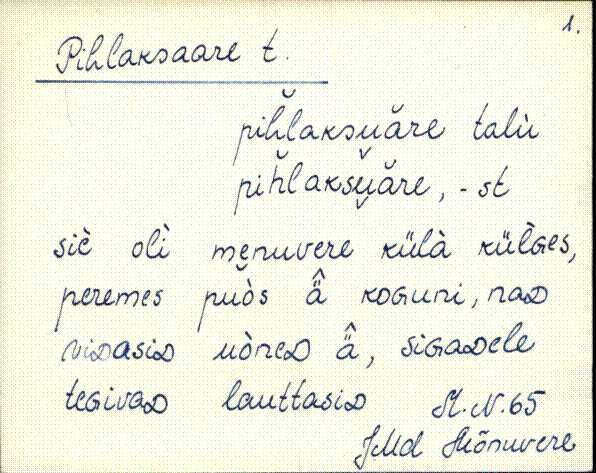 1.
Pihlaksaare t.
pih̆laksuăre talù
pih̆laksu̬ăre, -st
siè olì mẹnuvere külà külGes,
peremes puòs ä̂ koGuni, naD
viDasiD uòneD ä̂, siGaDele
teGivaD lauttasiD M.N. 65
JMd Mõnuvere